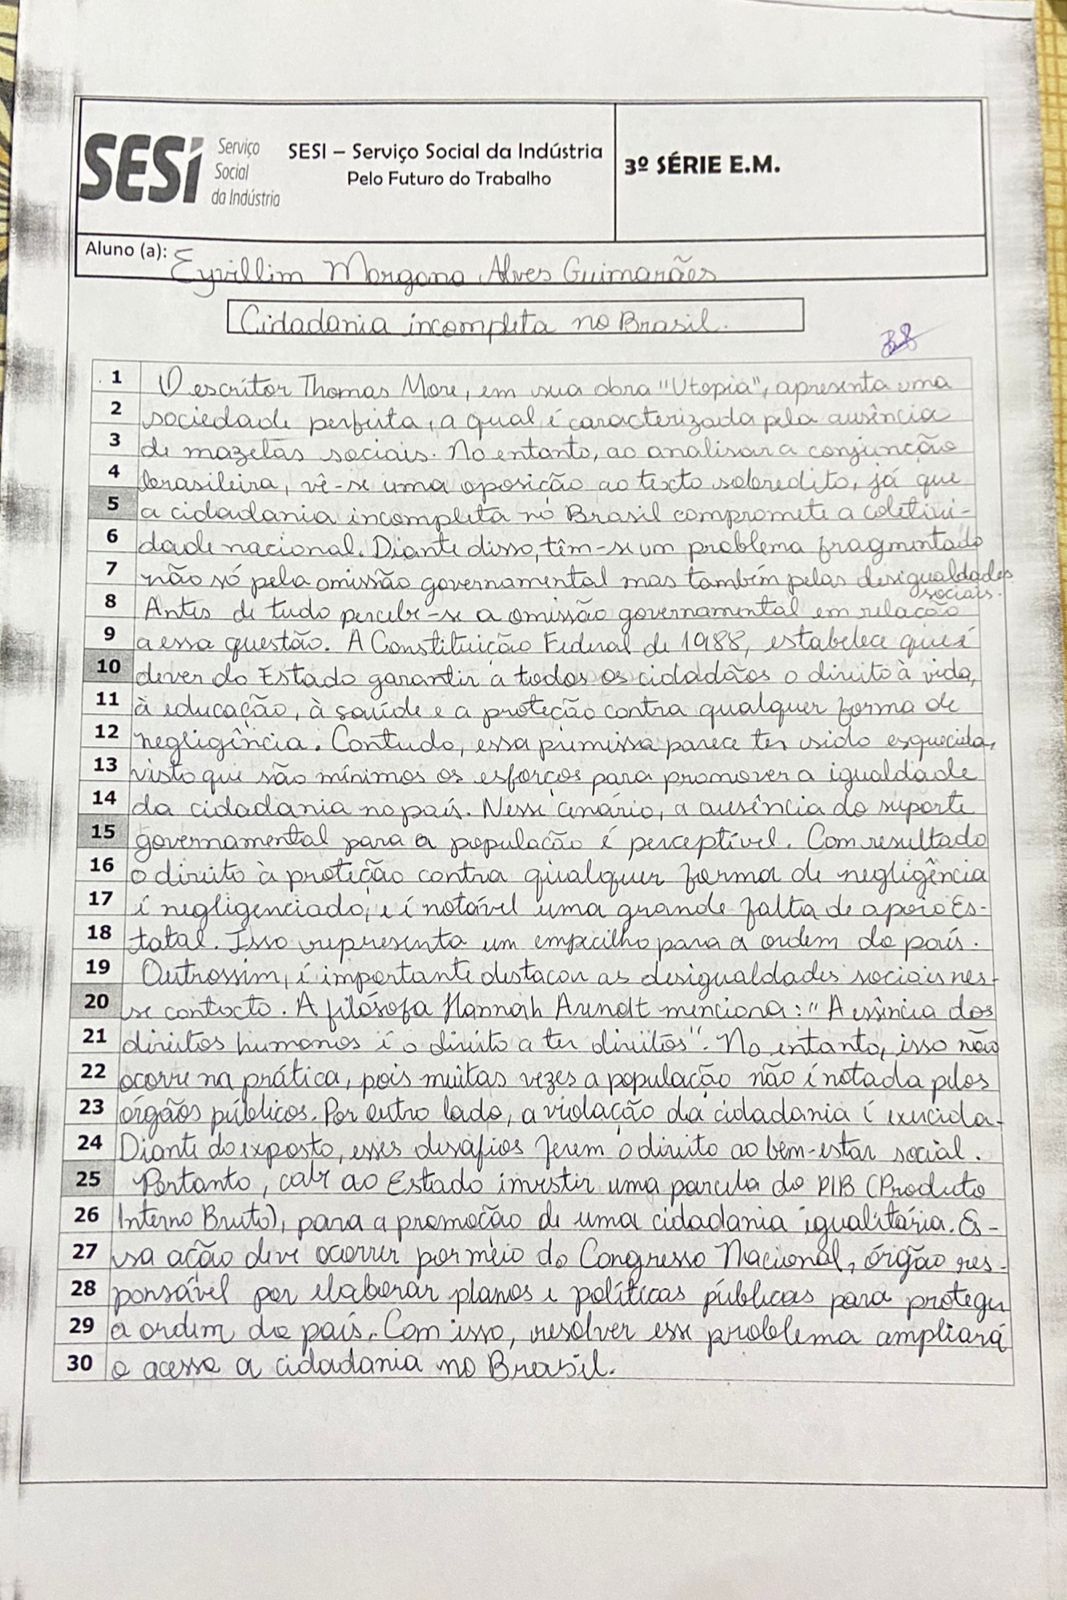 SESI Serviço Social da Indústria
SESI – Serviço Social da Indústria
Pelo Futuro do Trabalho
3º SÉRIE E.M.
Aluno (a): Eyvillim Morgana Alves Guimarães
Cidadania incompleta no Brasil.
1 O escritor Thomas More, em sua obra "Utopia", apresenta uma
2 sociedade perfeita, a qual é caracterizada pela ausência
3 de mazelas sociais. No entanto, ao analisar a conjunção
4 brasileira, vê-se uma oposição ao texto sobredito, já que
5 a cidadania incompleta no Brasil compromete a coletivi-
6 dade nacional. Diante disso, têm-se um problema fragmentado
7 não só pela omissão governamental mas também pelas desigualdades sociais.
8 Antes de tudo percebe-se a omissão governamental em relação
9 a essa questão. A Constituição Federal de 1988, estabelece que é
10 dever do Estado garantir a todos os cidadãos o direito à vida,
11 à educação, à saúde e a proteção contra qualquer forma de
12 negligência. Contudo, essa premissa parece ter sido esquecida,
13 visto que são mínimos os esforços para promover a igualdade
14 da cidadania no país. Nesse cenário, a ausência do suporte
15 governamental para a população é perceptível. Com resultado
16 o direito à proteção contra qualquer forma de negligência
17 é negligenciado, e é notável uma grande falta de apoio Es-
18 tatal. Isso representa um empecilho para a ordem do país.
19 Outrossim, é importante destacar as desigualdades sociais nes-
20 se contexto. A filósofa Hannah Arendt menciona: "A essência dos
21 direitos humanos é o direito a ter direitos". No entanto, isso não
22 ocorre na prática, pois muitas vezes a população não é notada pelos
23 órgãos públicos. Por outro lado, a violação da cidadania é exercida.
24 Diante do exposto, esses desafios ferem o direito ao bem-estar social.
25 Portanto, cabe ao Estado investir uma parcela do PIB (Produto
26 Interno Bruto), para a promoção de uma cidadania igualitária. Es-
27 sa ação deve ocorrer por meio do Congresso Nacional, órgão res-
28 ponsável por elaborar planos e políticas públicas para proteger
29 a ordem do país. Com isso, resolver esse problema ampliará
30 o acesso a cidadania no Brasil.